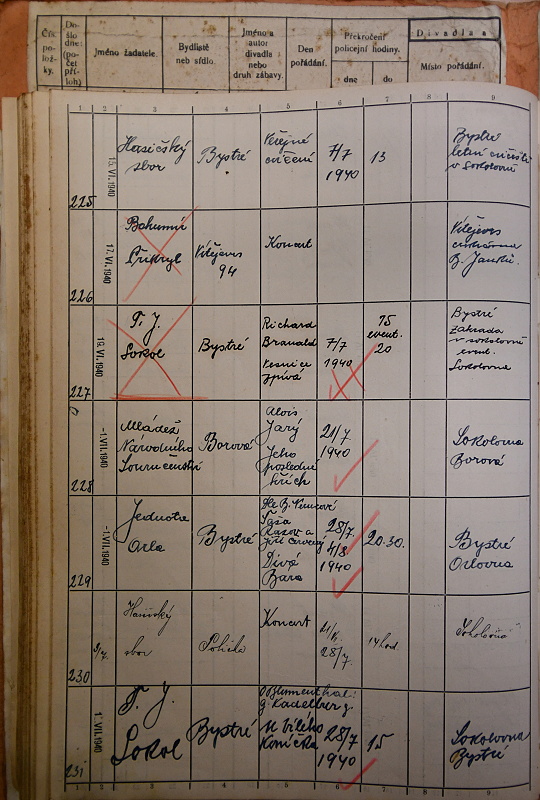 Čís. po- lož- ky.
Do- šlo dne: (po- čet pří- loh)
Jméno žadatele.
Bydliště
neb sídlo.
Jméno a
autor
divadla
nebo
druh zábavy.
Den
pořádání.
Překročení
policejní hodiny.
dne
do
Divadla a
Místo pořádání.
1 2 3 4 5 6 7 8 9
225
15. VI. 1940
Hasičský
sbor
Bystré
Veřejné
cvičení
7/7
1940
13
Bystré
letní cvičiště
v Sokolovni
226
17. VI. 1940
Bohumír
Přikryl
Vítějeves
94
Koncert
Vítějeves
B.
227
19. VI. 1940
T. J.
Sokol
Bystré
Richard
Branald
Vesnice
zpívá
7/7
1940
15
event.
20
Bystré
Zahrada
v sokolovně
event.
Sokolovna
228
-1. VII. 1940
Mládež
Národního
Souručenství
Borová
Alois
Jarý
Jeho
poslední
hřích
21/7
1940
Sokolovna
Borová
229
-1. VII. 1940
Jednota
Orla
Bystré
Dle B. Němcové
a
Divá
Bara
28/7
4/8
1940
20.30.
Bystré
Orlovna
230
3/7.
Hasičský
sbor
Koncert
28/7.
14 hod
Sokolovna
231
1. VII. 1940
T. J.
Sokol
Bystré
G. Kadelburg.
U bílého
Koníčka
28/7
1940
15
Sokolovna
Bystré
1 2 3 4 5 6 7 8 9